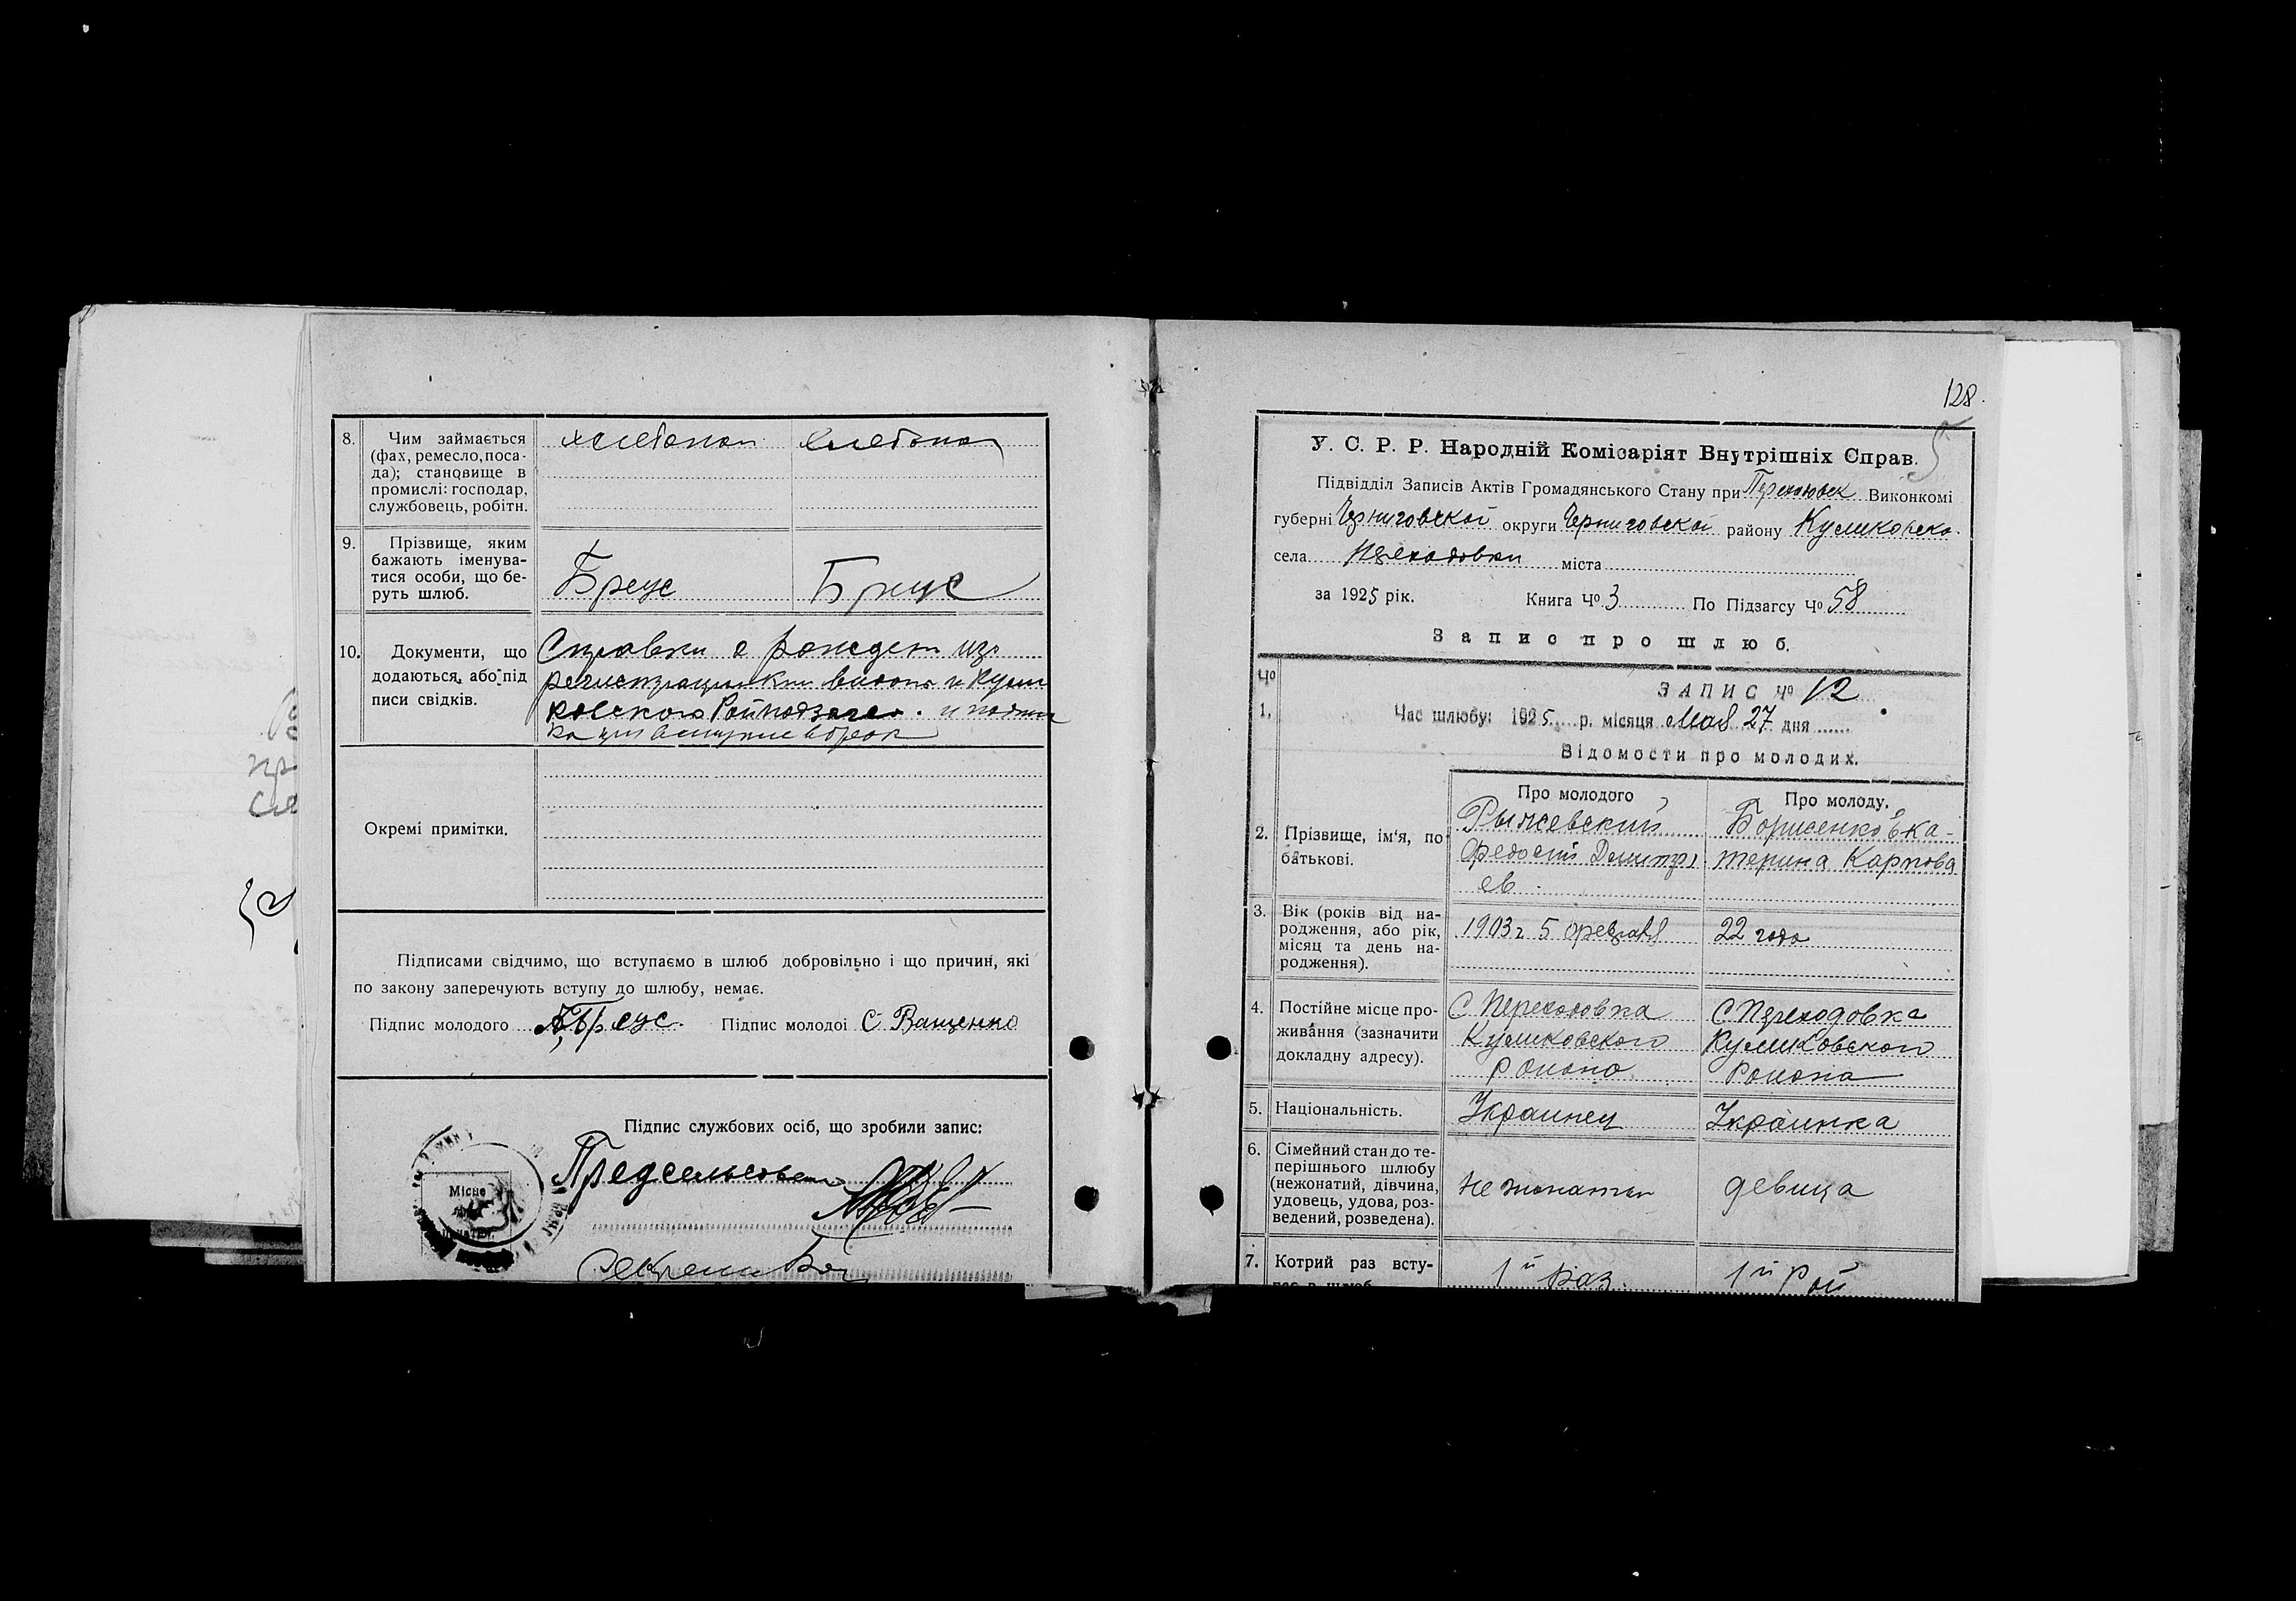 8. Чим займається
(фах, ремесло, поса-
да); становище в
промислі: господар,
службовець, робітн.
хлебопаш хлебопаш
9. Прізвище, яким
бажають іменува-
тися особи, що бе-
руть шлюб.
Бреус Бреус
10. Документи, що
додаються, або під
писи свідків.
Справки о рожден из
регистрац
ковского Райподзагса. и подпи
Окремі примітки.
Підписами свідчимо, що вступаємо в шлюб добровільно і що причин, які
по закону заперечують вступу до шлюбу, немає.
Підпис молодого Бреус. Підпис молодої С Ващенко
Підпис службових осіб, що зробили запис:
Предсельсовета
Місце
Секретарь
128.
5
У. С. Р. Р. Народній Комісаріят Внутрішніх Справ.
Підвідділ Записів Актів Громадянського Стану при Переходовск Виконкомі
губерні Черниговской округи Черниговской району Куликовско
села Переходовки міста
за 1925 рік. Книга Ч° 3 По Підзагсу Ч° 58
Запис про шлюб.
Ч°
ЗАПИС Ч° 12
1. Час шлюбу: 1925 р. місяця Мая 27 дня
Відомости про молодих.
Про молодого Про молоду.
2. Прізвище, ім'я, по
батькові.
Рыжевский
Федосий Дмитри
ев
Борисенкова Ека-
терина Карпова
3. Вік (років від на-
родження, або рік,
місяц та день на-
родження).
1903 г 5 февраля 22 года
4. Постійне місце про-
живання (зазначити
докладну адресу).
С Переходовка
Куликовского
района
С Переходовка
Куликовского
Района
5. Національність.
Украинец Украинка
6. Сімейний стан до те-
перішнього шлюбу
(нежонатий, дівчина,
удовець, удова, роз-
ведений, розведена).
не женатый девица
7. Котрий раз всту-
пає в шлюб
1й раз. 1й раз